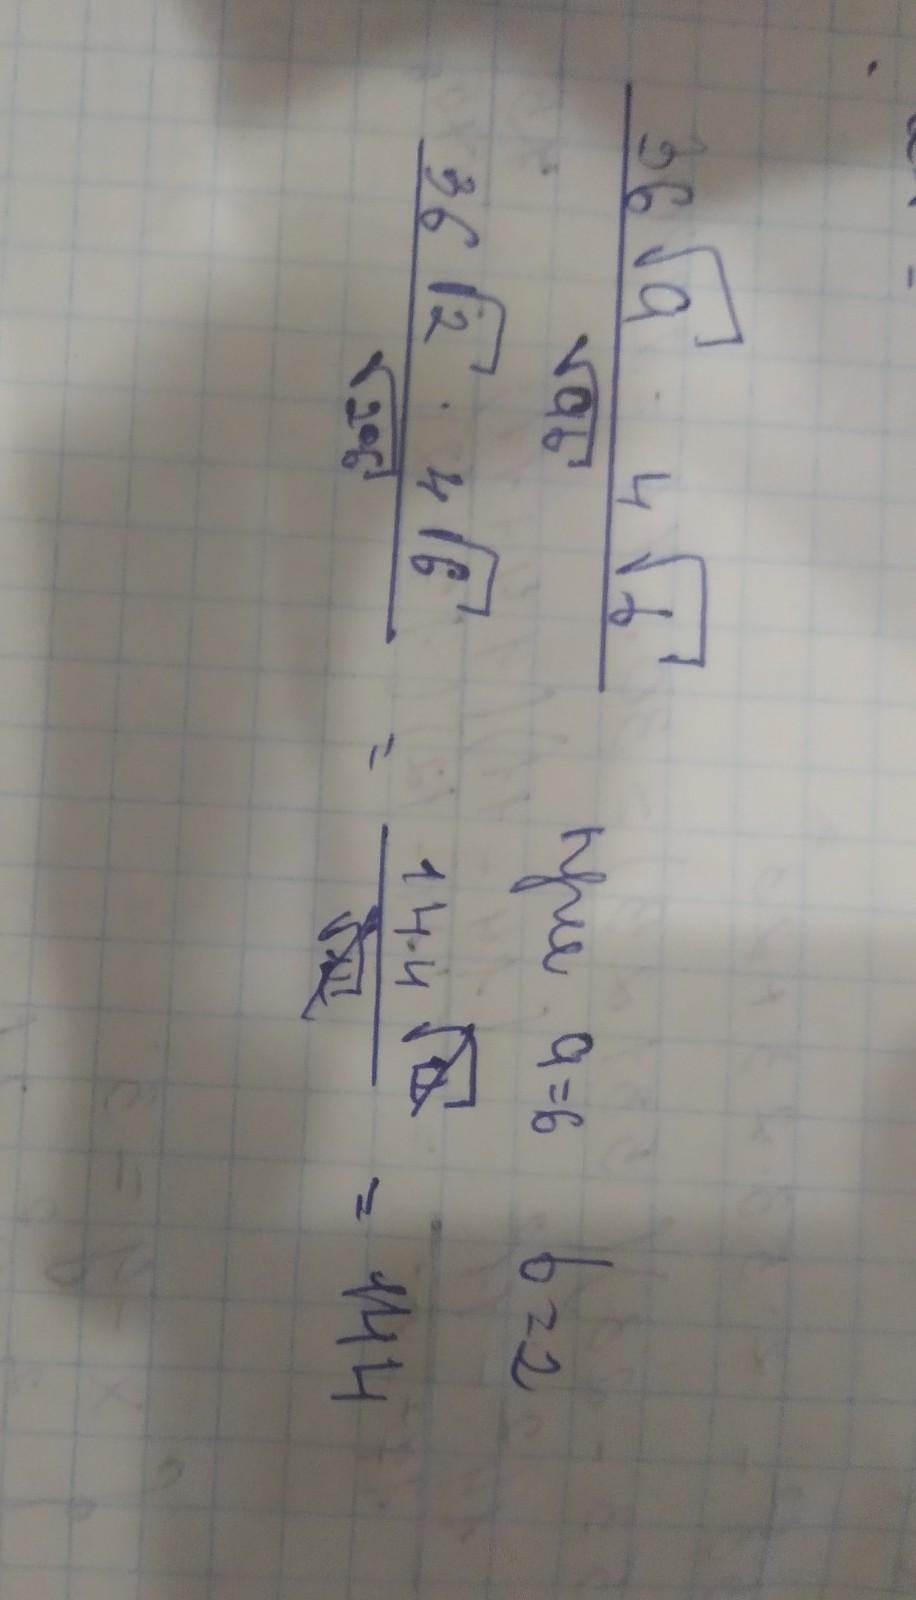 36√a · 4√b / √ab при a=6 b=2
36√2 · 4√6 / √2·6 = 144 / = 144